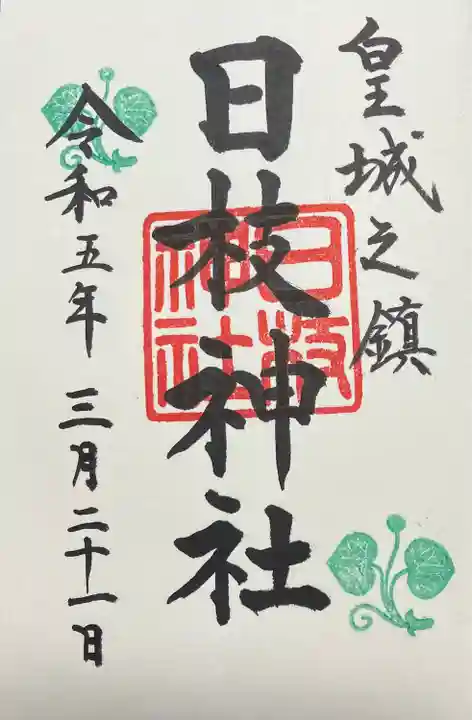 皇城之鎮
日枝神社
日枝神社
令和五年三月二十一日